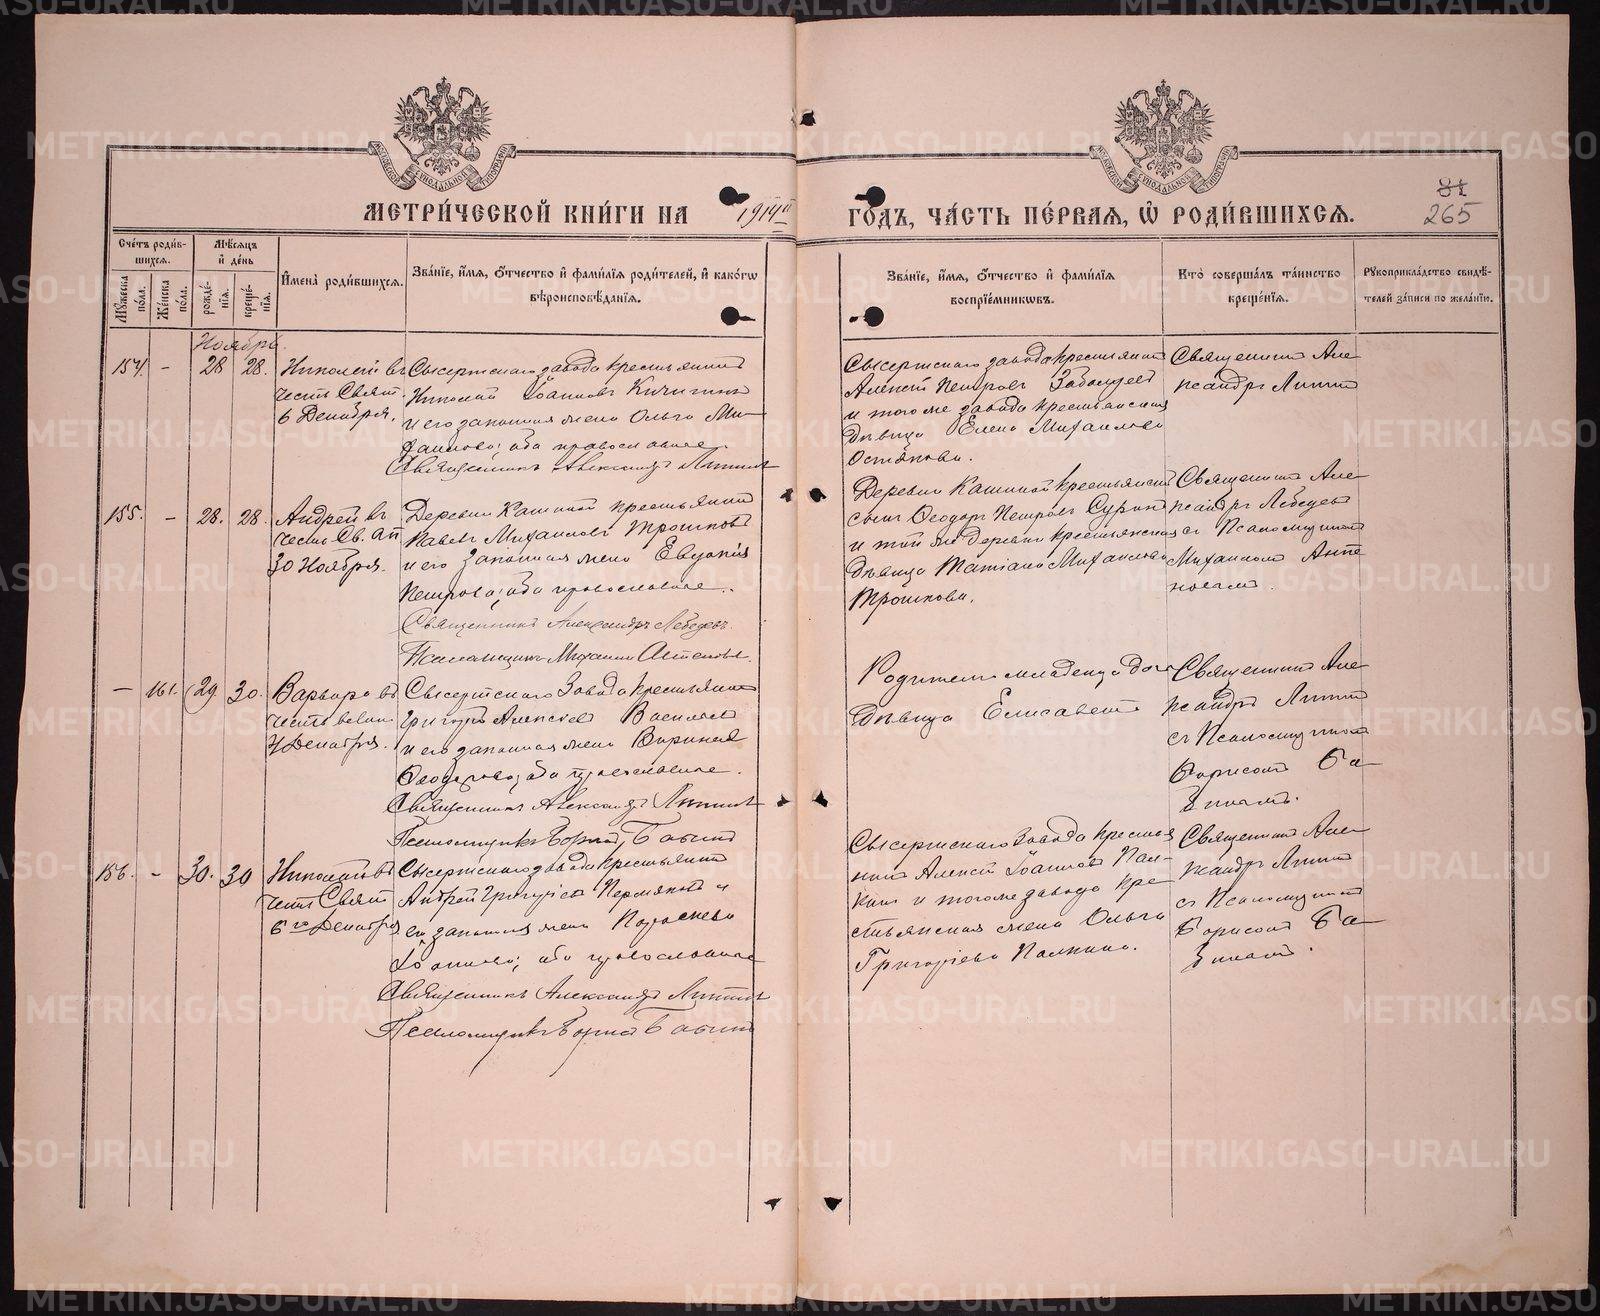 МЕТРИ́ЧЕСКОЙ КНИ́ГИ НА 1914й ГО́ДЪ, ЧА́СТЬ ПЕ́РВАЯ, Ѡ РОДИ́ВШИХСЯ.
81
265
Сче́тъ роди́в-
шихся.
Му́жеска по́ла.
Же́нска по́ла.
Мѣ́сяцъ
и де́нь
рожде́-
нїя.
креще́-
нїя.
Имена̀ роди́вшихся.
Зва́нїе, и́мя, о́тчество и фами́лїя роди́телей, и како́гѡ
вѣроисповѣ́данїя.
Зва́нїе, и́мя, о́тчество и фами́лїя
воспрїе́мниковъ.
Кто̀ соверша́лъ та́инство
креще́нїя.
Рꙋкоприкла́дство свидѣ́-
телей за́писи по жела́нїю.
Ноябрь.
154. - 28 28.
Николай въ
честь Свят.
6 Декабря.
Сысертскаго завода крестьянинъ
Николай Іоанновъ Кичигинъ
и его законная жена Ольга Ми-
хаилова; оба православные
Священникъ Александръ
Сысертскаго завода крестьянинъ
Алексѣй Петровъ
и того же завода крестьянская
дѣвица Елена Михаилова
Священникъ Але
ксандръ
155. - 28. 28.
Андрей въ
честь Св. ап
30 Ноября.
Деревни Кашиной крестьянинъ
Павелъ Михаиловъ Трошковъ
и его законная жена Евдокія
Петрова; оба православные.
Священникъ Александръ Лебедевъ.
Псаломщикъ Михаилъ
Деревни Кашиной крестьянскій
сынъ Ѳеодоръ Петровъ Суринъ
и той же деревни крестьянская
дѣвица Татіана Михаилова
Трошкова.
Священникъ Але
ксандръ Лебедевъ
съ Псаломщикомъ
Михаиломъ
- 161. 29 30.
Варвара въ
честь велик.
4 Декабря.
Сысертскаго Завода крестьянинъ
Григорій Алексѣевъ Васильевъ
и его законная жена Вириней
Ѳеодорова; оба православные.
Священникъ Александръ
Псаломщикъ Борисъ Бабинъ
Родители младенца дочь
дѣвица Елисавета
Священникъ Але
ксандръ
съ Псаломщикомъ
Борисомъ Ба-
бинымъ.
156. - 30. 30
Николай въ
честь Свят
6го Декабря
Сысертскаго завода крестьянинъ
Андрей Григорьевъ Пермяковъ и
его законная жена Параскева
Іоаннова; оба православные
Священникъ Александръ
Псаломщикъ Борисъ Бабинъ
Сысертскаго Завода крестья
нинъ Алексѣй Іоанновъ Пал-
кинъ и того же завода кре
стьянская жена Ольга
Григорьева Палкина.
Священникъ Але
ксандръ
съ Псаломщикомъ
Борисомъ Ба-
бинымъ.
METRIKI.GASO-URAL.RU